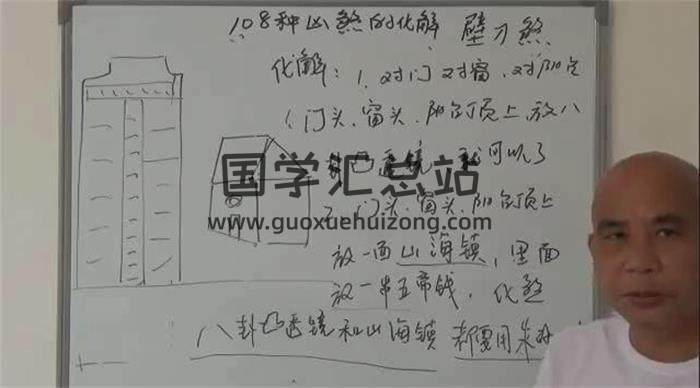 108种凶煞的化解 壁刀煞
化解：1、对门对窗、对阳台
1、门头、窗头、阳台顶上、放八
卦凸透镜 就可以了
2、门头、窗头、阳台顶上
放一面山海镇，里面
放一串五帝钱，化煞
八卦凸透镜和山海镇 都要用朱砂
国学汇总站
www.guoxuehuizong.com